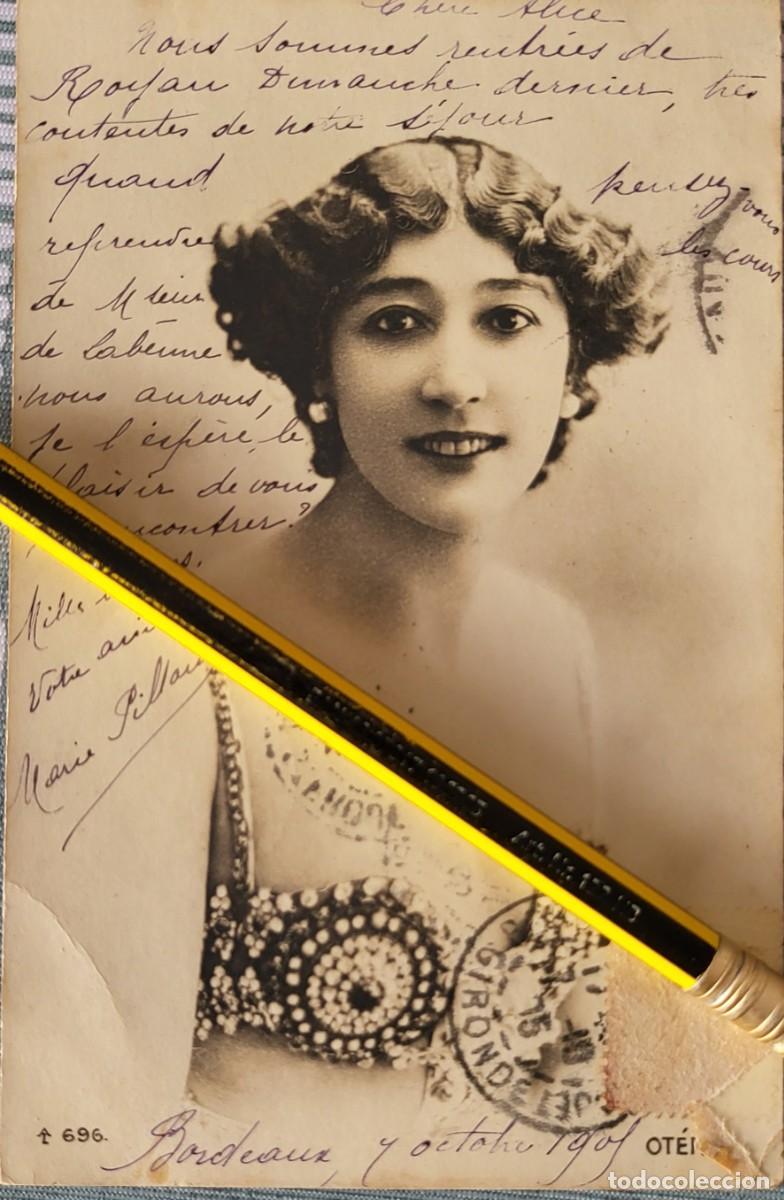 Chère Alice
Nous sommes rentrées de
Royan Dimanche dernier, très
contentes de notre séjour
quand pensez-vous
reprendre les cours
de Mieur
de Labenne
nous aurons,
je l'espère, le
plaisir de vous
rencontrer?
Mille
Votre amie
Marie
GIRONDE
15
696.
Bordeaux, 7 octobre 190
OTÉ
todocoleccion